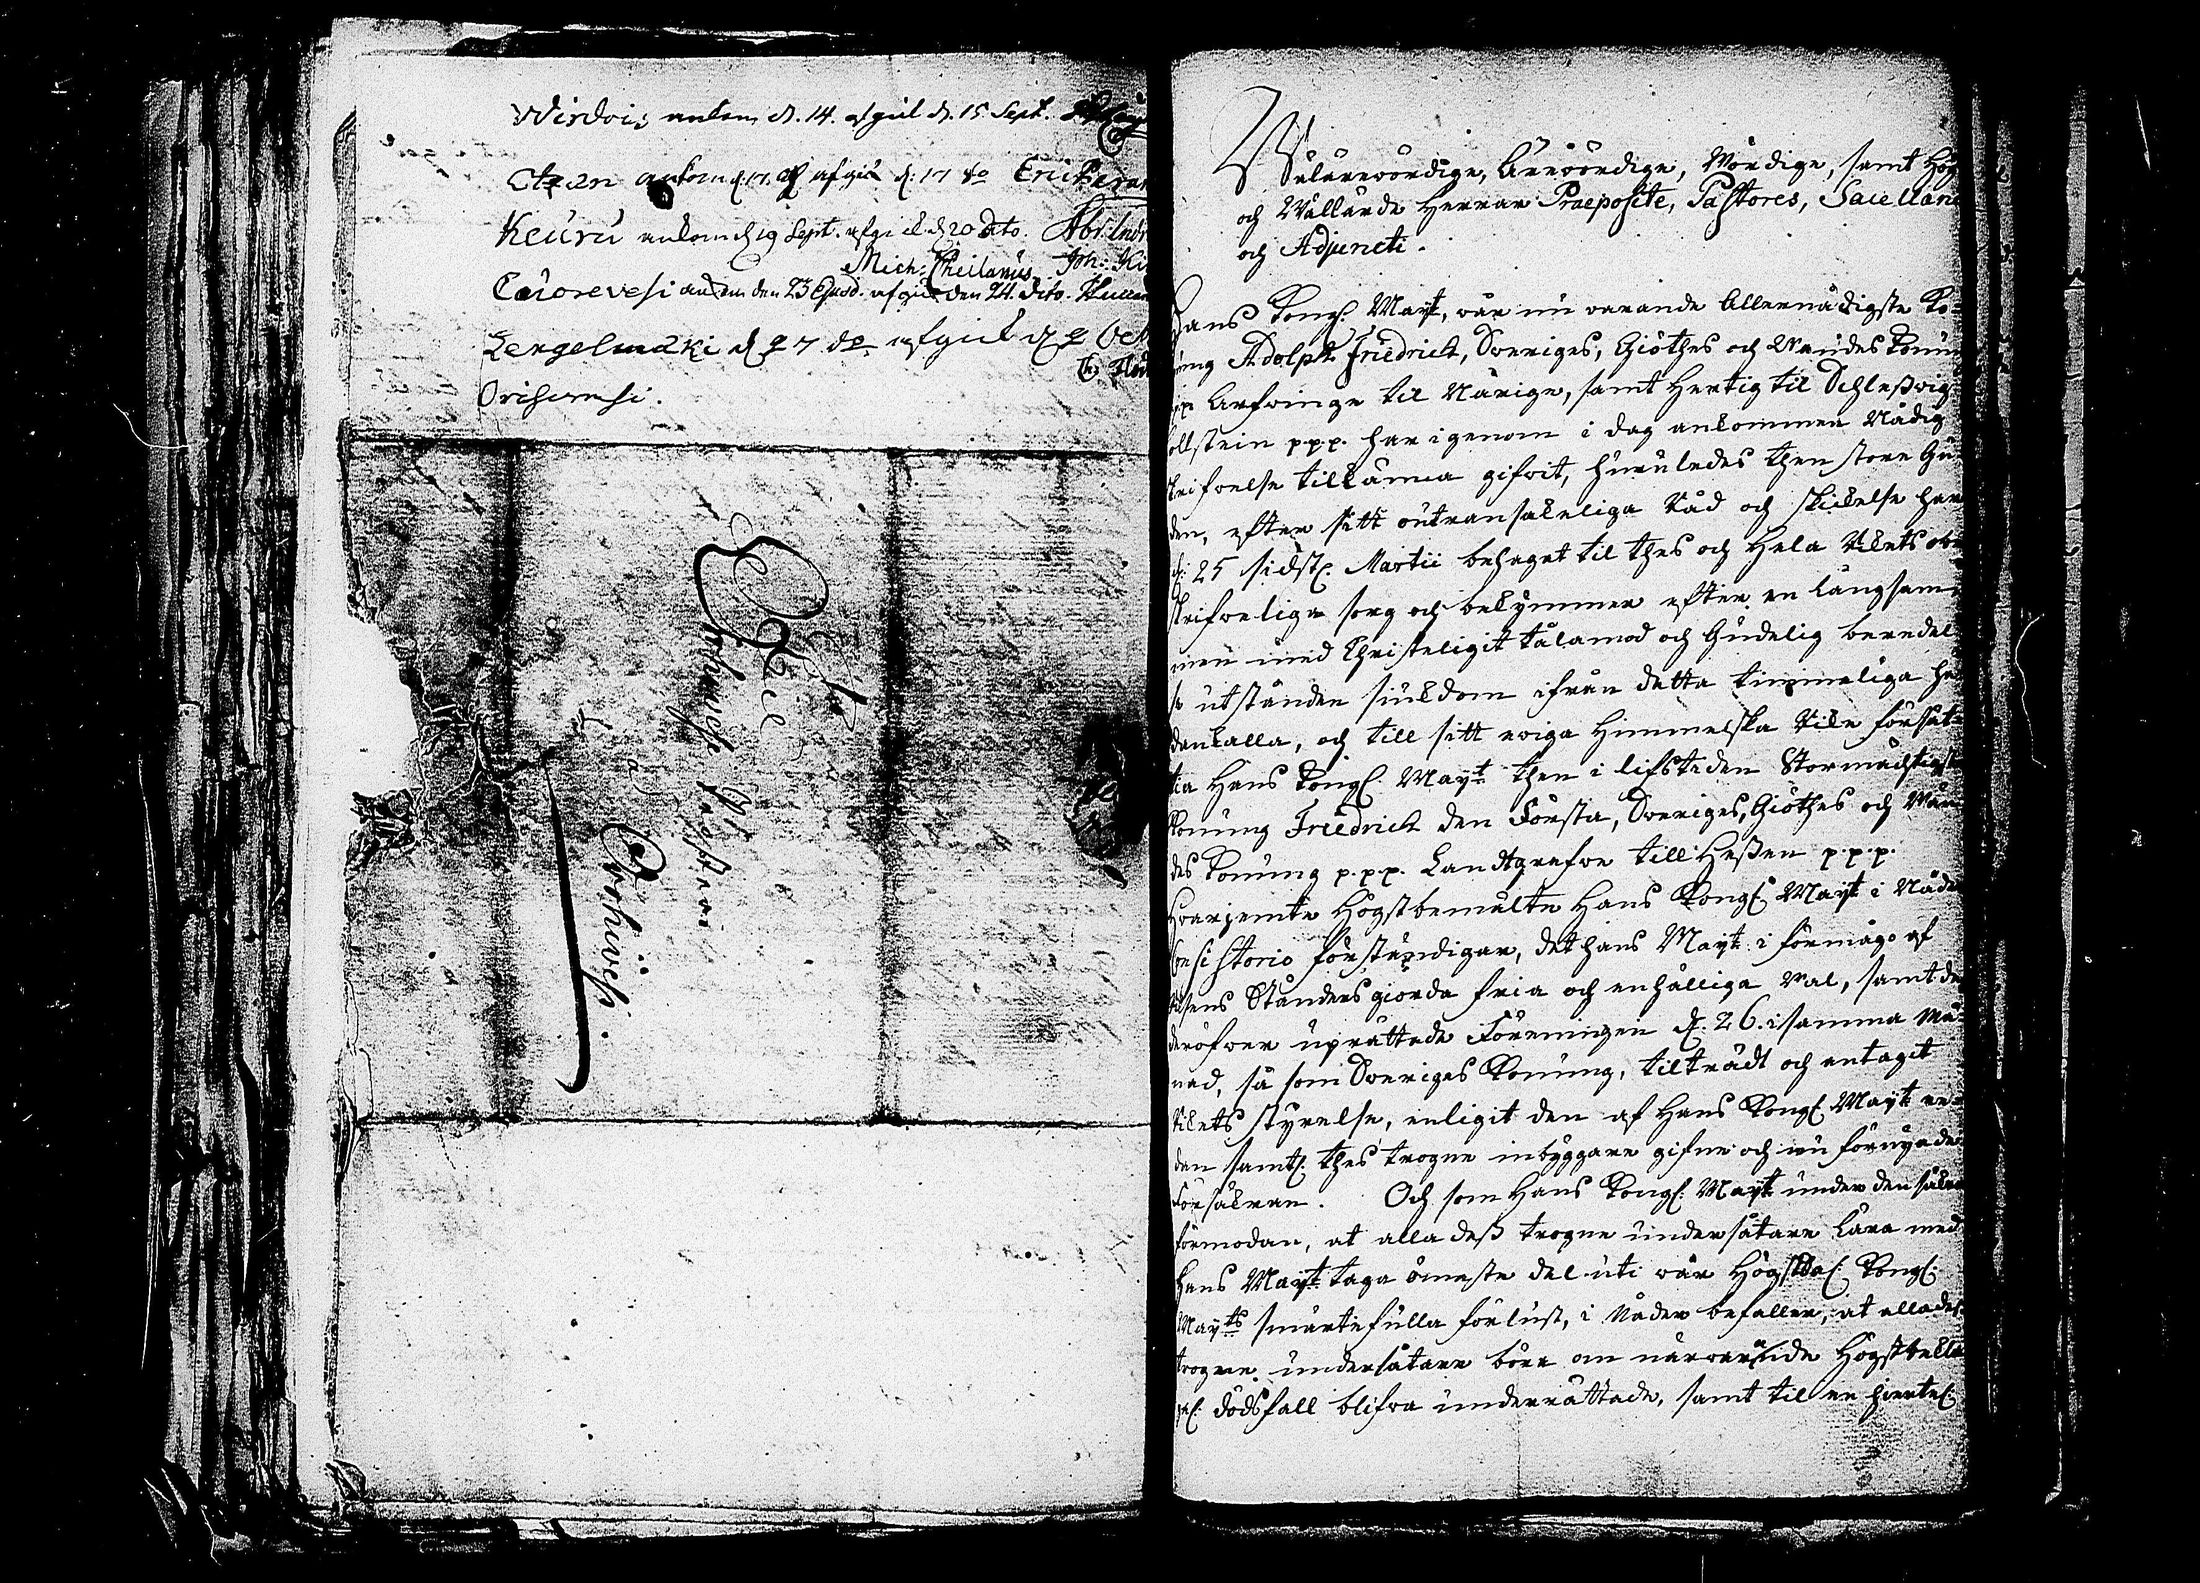 Wirdois ankom d. 14. afgick d. 15 Sept.
ankom d. 17. afgick d. 17 do Eric
Keuru ankom d 19 Sept. afgick d 20 dito. Abr:
Mich: Joh:
ankom den 23 Ejusd. afgick den 24. dito.
Lengelmäki d 27 do afgick d 2 Oct
Orihwesi.
Orihwesi
Pastori
Orihwesi.
Wälärewördige, Ärewördige, Wördige, samt Hög
och Wällärde Herrar Praeposite, Pastores, Sacellani
och Adjuncti.
Hans Kongl. Mayt, wår nu warande Allernådigste Ko-
nung Adolph Friedrich, Sweriges, Giöthes och Wendes Konung
ppp Arfwinge til Norige, samt Hertig til Schleßwig
ollstein p.p.p. har igenom i dag ankommen Nådig
skrifwelse tillkänna gifwit, huruledes then store Gu-
den, efter sitt outransakeliga Råd och skickelse har
d: 25 sidstl. Martii behaget til thes och hela Rikets obe
skrifweliga sorg och bekymmer efter en långsam,
men med Christeligit tålamod och Gudelig beredel-
se utstånden siukdom ifrån detta timmeliga hä
dankalla, och till sitt ewiga Himmelska Rike försät-
tia Hans Kongl. Mayt then i lifstiden Stormächtigste
Konung Friedrich den Första, Sweriges, Giöthes och Wän-
des Konung p.p.p. Landtgrefwe till Heßen p.p.p.
Hwarjemte Högstbemälte Hans Kongl. Mayt i Nåder
Consistorio förständigar, det hans Mayt i förmågo af
Riksens Ständers giorda fria och enhälliga wal, samt de
deröfwer uprättade Föreningen d. 26. i samma Må-
nad, så som Sweriges Konung, tilträdt och antagit
Rikets styrelse, enligit den af Hans Kongl. Mayt re-
dan samtl. thes trogne inbyggare gifne och nu förnyade
Försäkran. Och som Hans Kongl. Mayt under den säkra
förmodan, at alla deß trogne undersåtare lära med
hans Mayt taga ömaste del uti wår Högstsal. Kongl.
Mayts smärtefulla förlust, i Nåder befaller, at alla deß
trogne undersåtare böra om närwarande Högstbekla
gel. dödsfall blifwa underrättade, samt til en hiertel.